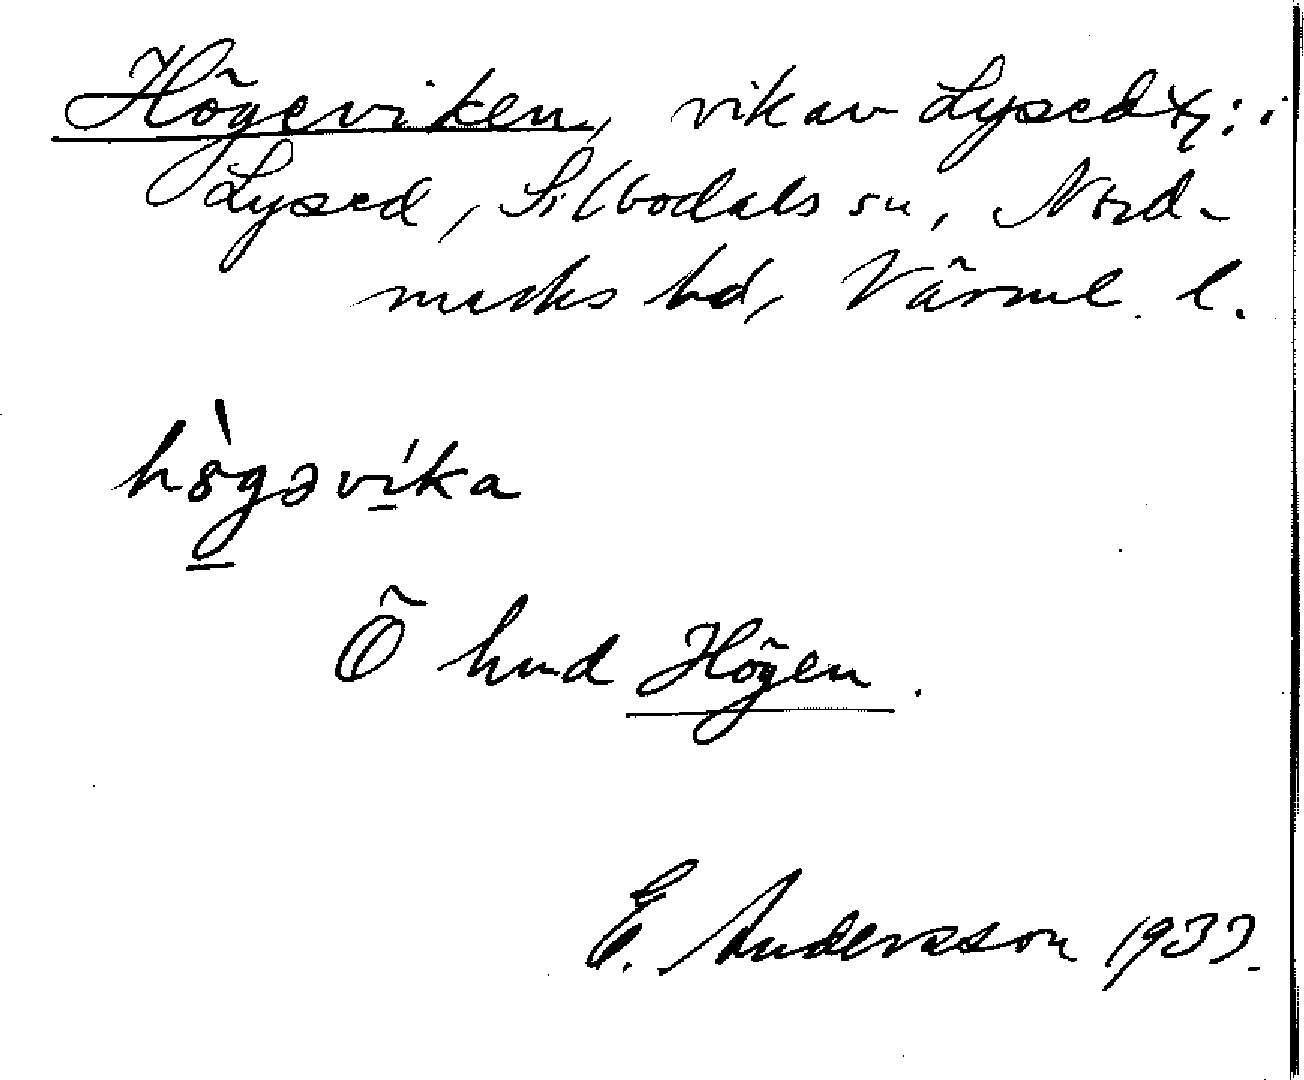 Högeviken, vik av Lysedtj: i
Lysed, Silbodals sn, Nord-
marks hd, Värml. l.
hö̀gəvíka
Ö hmd Högen.
E. Andersson 1933.